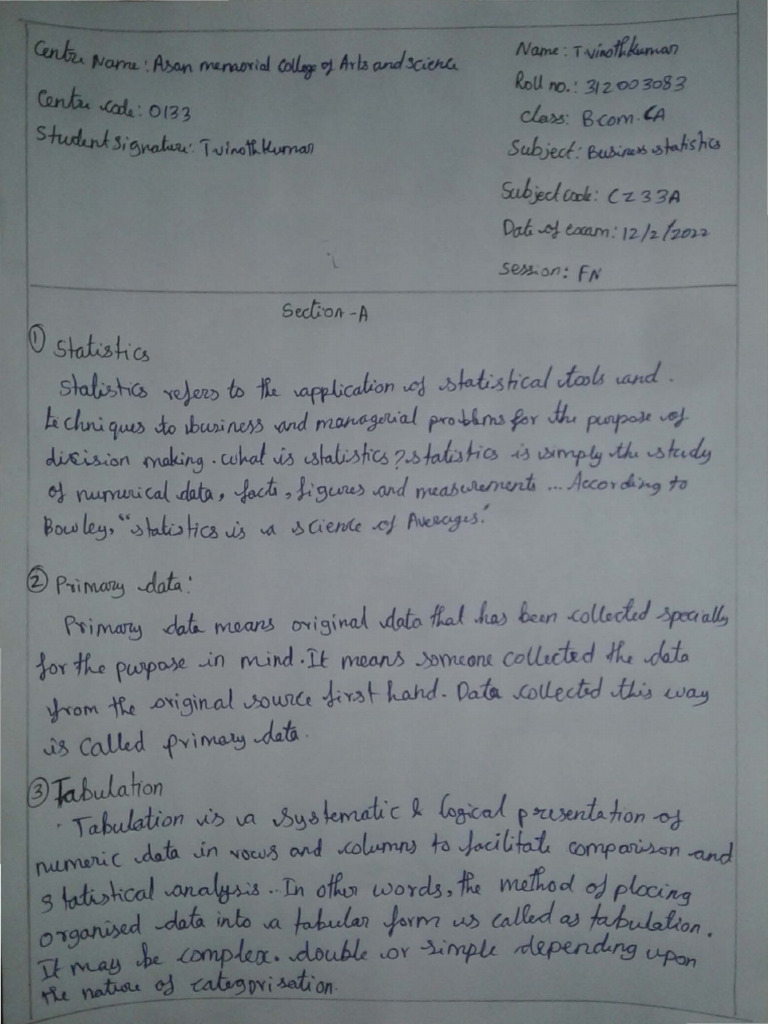 Centre Name: Asan memorial College of Arts and science
Centre code: 0133
Student signature: T vinoth kumar
Name: T vinoth kumar
Roll no.: 312003083
class: B com. CA
Subject: Business statistics
Subject code: CZ33A
Date of exam: 12/2/2022
session: FN
Section-A
① Statistics
Statistics refers to the application of statistical tools and
techniques to business and managerial problms for the purpose of
dicision making. what is statistics? statistics is simply the study
of numerical data, facts, figures and measurements ... According to
Bowley, "statistics is a science of Averages."
② Primary data:
Primary data means original data that has been collected specially
for the purpose in mind. It means someone collected the data
from the original source first hand. Data collected this way
is called primary data.
③ Tabulation
Tabulation is a systematic & logical presentation of
numeric data in rows and columns to facilitate comparison and
statistical analysis.. In other words, the method of placing
organised data into a tabular form is called as tabulation.
It may be complex. double or simple depending upon
the nature of categorisation.